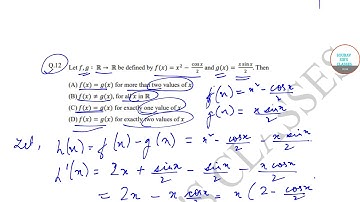 Q.12 Let f, g : ℝ → ℝ be defined by f(x) = x² − cosx/2 and g(x) = x sinx/2. Then
(A) f(x) = g(x) for more than two values of x
(B) f(x) ≠ g(x), for all x in ℝ
(C) f(x) = g(x) for exactly one value of x
(D) f(x) = g(x) for exactly two values of x
f(x) = x² − cosx/2
g(x) = x sinx/2
Let, h(x) = f(x) − g(x) = x² − cosx/2 − x sinx/2
h'(x) = 2x + sinx/2 − sinx/2 − x cosx/2
= 2x − x cosx/2 = x (2 − cosx/2
CLASSES